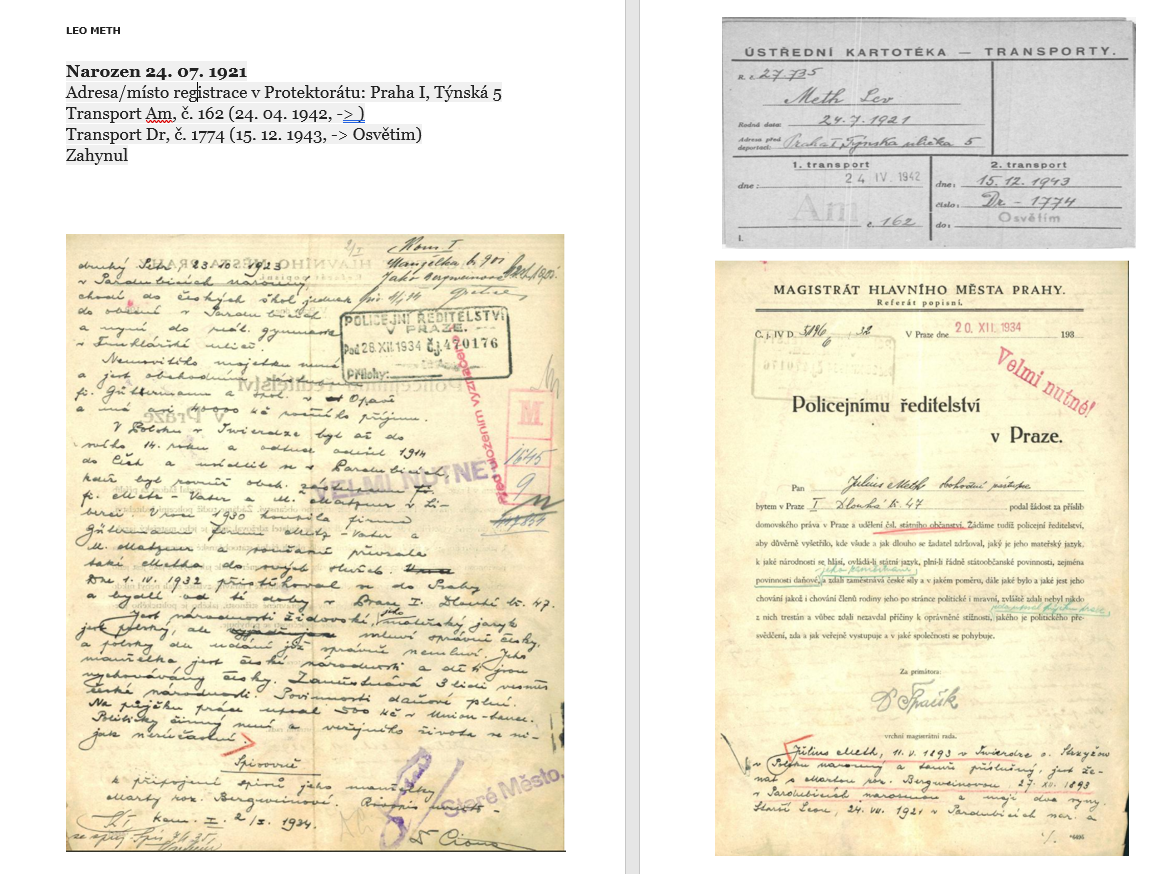 LEO METH
Narozen 24. 07. 1921
Adresa/místo registrace v Protektorátu: Praha I, Týnská 5
Transport Am, č. 162 (24. 04. 1942, -> )
Transport Dr, č. 1774 (15. 12. 1943, -> Osvětim)
Zahynul
Kom I.
Manželka
druhý 23 1923
v Pardubicích narozený
chodí do českých škol jednak
do obecné v Pardubicích
a nyní do reál. gymnasia
v Truhlářské ulici.
Nemovitého majetku nemá
a jest obchodním
fi. Gütermann a spol. v Opavě
a má asi 40000 Kč ročního příjmu.
POLICEJNÍ ŘEDITELSTVÍ
V PRAZE.
Pod 28.XII.1934 č.j. 470176
Přílohy:
M
1645
9
V Polsku v Twierdze byl až do
svého 14. roku a odtud odešel 1914
do Čech a usídlil se v Pardubicích
VELMI NUTNÉ
fi. Metz - Vater a M. Metzger v Li-
berci. V roce 1930 koupila firma
Gütermann firmu Metz - Vater a
M. Metzger a současně převzala
také Metha do svých služeb.
Dne 1. IV. 1932 přistěhoval se do Prahy
a bydlí od té doby v Praze I. Dlouhá tř. 47.
Jest národnosti židovské, jeho mateřský jazyk
jest polský, ale mluví správně česky
a polsky dle udání již správně nemluví. Jeho
manželka jest české národnosti a děti jsou
vychovávány česky. Zaměstnává 3 lidi vesměs
české národnosti. Povinnosti daňové plní.
Na půjčku práce upsal 500 Kč v Union-bance.
Politicky činný není a veřejného života se ni-
jak nezúčastní.
Spisovně
k připojení spisů jeho manželky
Marty roz. Bergweinové.
Kom. I. 2/I. 1934.
Staré Město.
ÚSTŘEDNÍ KARTOTÉKA — TRANSPORTY.
R. č. 27.735
Meth Leo
Rodná data: 24.7.1921
Adresa před deportací: Praha I Týnska ulička 5
1. transport
dne: 24 IV. 1942
Am č. 162
2. transport
dne: 15.12.1943
číslo: Dr - 1774
do: Osvětim
I.
MAGISTRÁT HLAVNÍHO MĚSTA PRAHY.
Referát popisní.
Č. j. IV D. V Praze dne 20. XII. 1934 193
Velmi nutné!
Policejnímu ředitelství
v Praze.
Pan Julius Meth obchodní zástupce
bytem v I Dlouhá tř. 47 podal žádost za příslib
domovského práva v Praze a udělení čsl. státního občanství. Žádáme tudíž policejní ředitelství,
aby důvěrně vyšetřilo, kde všude a jak dlouho se žadatel zdržoval, jaký je jeho mateřský jazyk,
k jaké národnosti se hlásí, ovládá-li státní jazyk, plní-li řádně státoobčanské povinnosti, zejména
povinnosti daňové, a zdali zaměstnává české síly a v jakém poměru, dále jaké bylo a jaké jest jeho
chování jakož i chování členů rodiny jeho po stránce politické i mravní, zvláště zdali nebyl nikdo
z nich trestán a vůbec zdali nezavdal příčiny k oprávněné stížnosti, jakého je politického pře-
svědčení, zda a jak veřejně vystupuje a v jaké společnosti se pohybuje.
Za primátora:
vrchní magistrátní rada.
Julius Meth, 11. V. 1893 v Twierdze o. Strzyżów
v Polsku narozený a tamže příslušný, jest že-
nat s Martou roz. Bergweinovou, 27. XII. 1893
v Pardubicích narozenou a mají dva syny.
Starší Leon, 24. VII. 1921 v Pardubicích nar. a